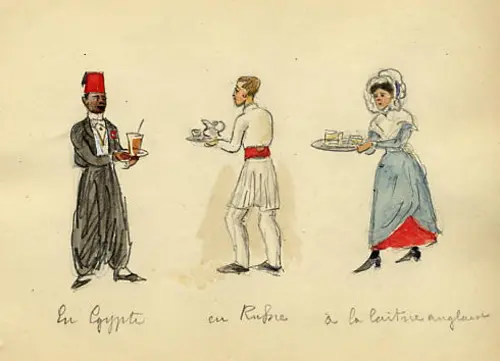 En Egypte
en Rußie
à la laitrie anglaise